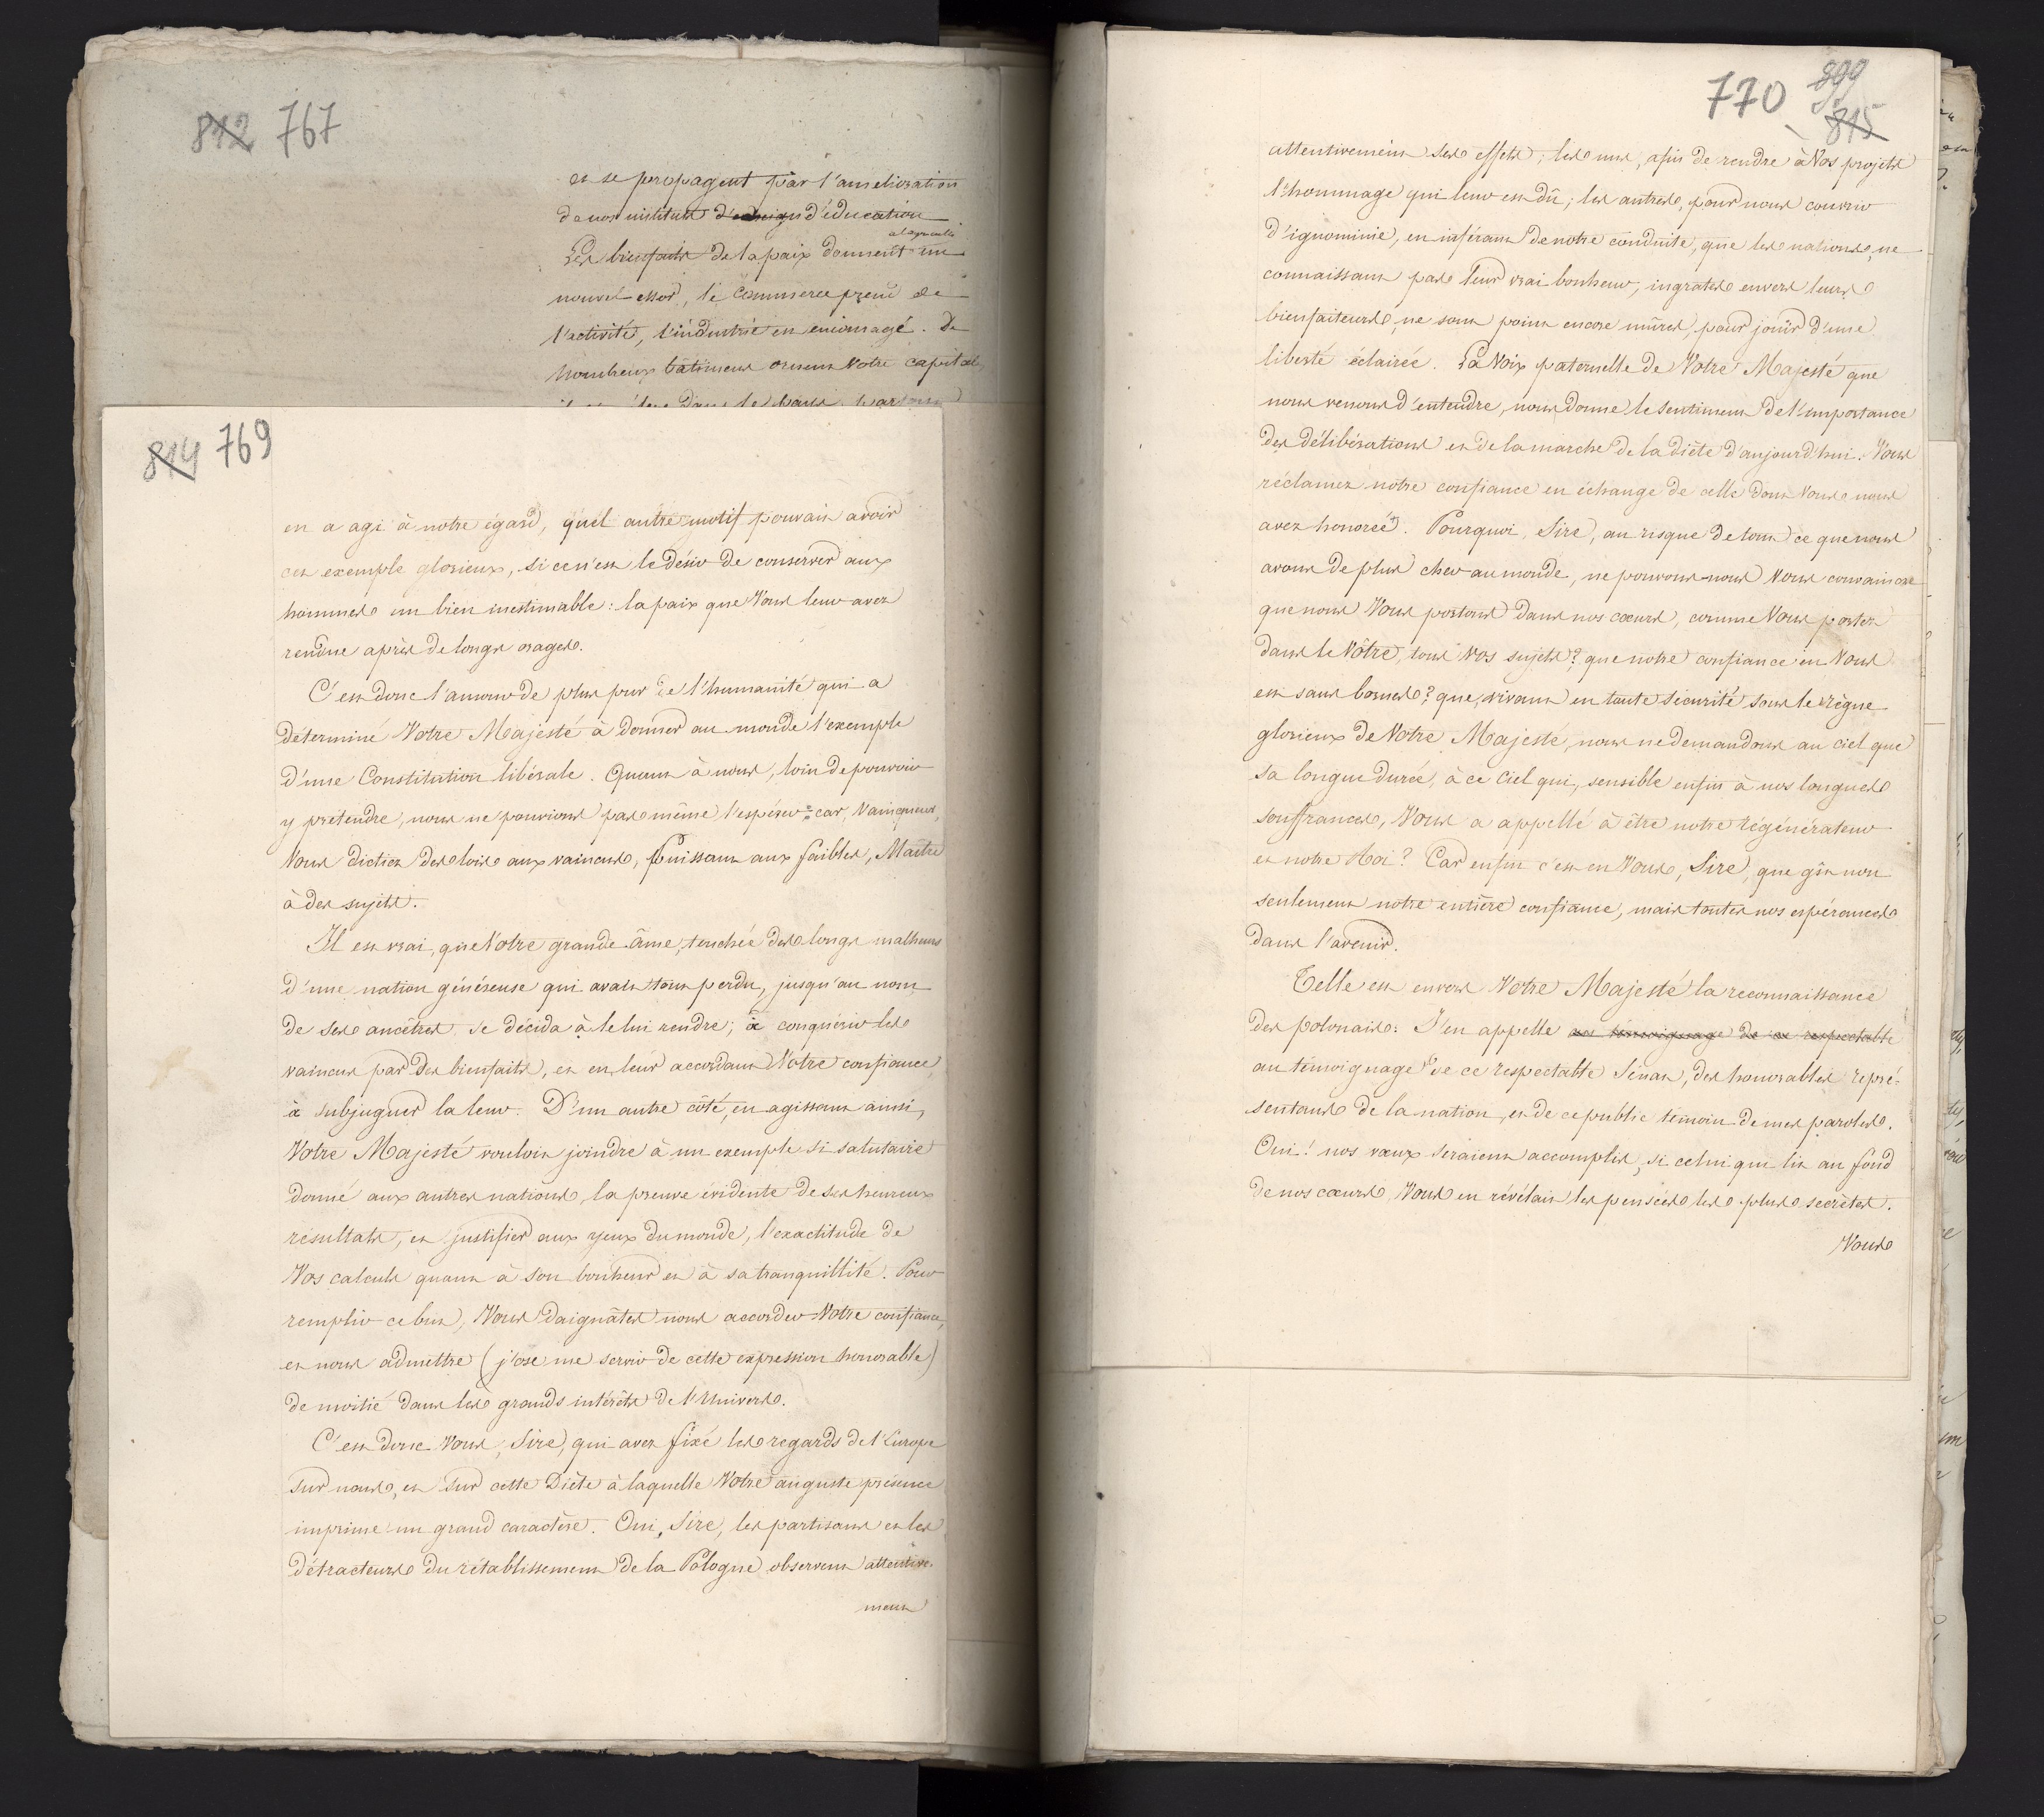 812 767
et se propagent par l'amelioration
de nos instituts d'enseign d'éducation
Les bienfaits de la paix donnent un
nouvel essor, le Commerce prend de
l'activité, l'industrie est encouragé. De
Nombreux bâtimens ornent Votre capitale
814 769
en a agi à notre égard, quel autre motif pouvait avoir
cet exemple glorieux, si ce n'est le désir de conserver aux
hommes un bien inestimable: la paix que Vous leur avez
rendue après de longs orages.
C'est donc l'amour de plus pur de l'humanité qui a
déterminé Votre Majesté à donner au monde l'exemple
d'une Constitution libérale. Quant à nous, loin de pouvoir
y prétendre, nous ne pouvions pas même l'espérer: car, Vainqueur,
Vous dictiez des loix aux vaincus, Puissant aux faibles, Maître
à des sujets.
Il est vrai, que Votre grande âme, touchée des longs malheurs
d'une nation généreuse qui avait tout perdu, jusqu'au nom
de ses ancêtres, se décida à le lui rendre; à conquérir les
vaincus par des bienfaits, et en leur accordant Votre confiance,
à subjuguer la leur. D'un autre côté, en agissant ainsi,
Votre Majesté voulait joindre à un exemple si salutaire
donné aux autres nations, la preuve évidente de ses heureux
résultats, et justifier aux yeux du monde, l'exactitude de
Vos calculs quant à son bonheur et à sa tranquillité. Pour
remplir ce but, Vous daignâtes nous accorder Votre confiance,
et nous admettre (j'ose me servir de cette expression honorable)
de moitié dans les grands intérêts de l'Univers.
C'est donc Vous, Sire, qui avez fixé les regards de l'Europe
sur nous, et sur cette Diète à laquelle Votre auguste présence
imprime un grand caractère. Oui, Sire, les partisans et les
détracteurs du rétablissement de la Pologne observent attentive-
ment
770 899
815
attentivement ses effets; les uns, afin de rendre à Vos projets
l'hommage qui leur est dû; les autres, pour nous couvrir
d'ignominie, en inférant de notre conduite, que les nations, ne
connaissant pas leur vrai bonheur, ingrates envers leurs
bienfaiteurs, ne sont point encore mûres, pour jouir d'une
liberté éclairée. La Voix paternelle de Votre Majesté que
nous venons d'entendre, nous donne le sentiment de l'importance
des délibérations et de la marche de la diète d'aujourd'hui. Vous
réclamez notre confiance en échange de celle dont Vous nous
avez honorée. Pourquoi, Sire, au risque de tout ce que nous
avons de plus cher au monde, ne pouvons-nous Vous convaincre
que nous Vous portons dans nos cœurs, comme Vous portez
dans le Vôtre, tous Vos sujets? que notre confiance en Vous
est sans bornes? que, vivant en toute sécurité sous le règne
glorieux de Votre Majesté, nous ne demandons au ciel que
sa longue durée, à ce ciel qui, sensible enfin à nos longues
souffrances, Vous a appellé à être notre régénérateur
et notre Roi? Car enfin c'est en Vous, Sire, que gît non
seulement notre entière confiance, mais toutes nos espérances
dans l'avenir.
Telle est envers Votre Majesté la reconnaissance
des polonais: J'en appelle au témoignage de ce respectable
au témoignage de ce respectable Sénat, des honorables repré-
sentans de la nation, et de ce public témoin de mes paroles.
Oui! nos vœux seraient accomplis, si celui qui lit au fond
de nos cœurs, Vous en révélait les pensées les plus secrètes.
Vous